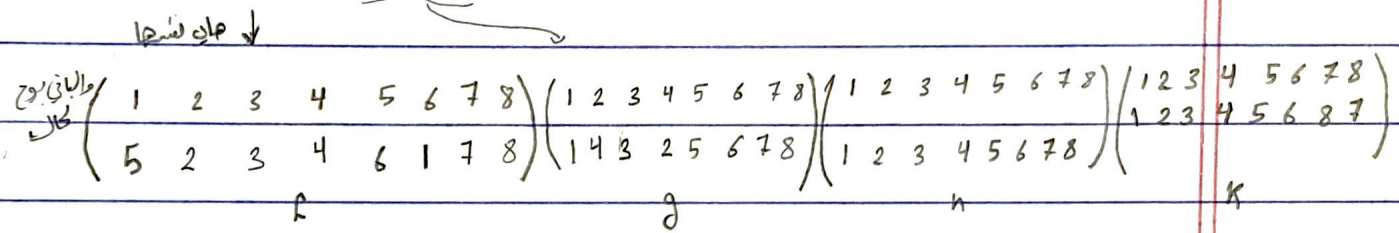 هاي نفسها ↓
والباقي بروح كمان
( 1 2 3 4 5 6 7 8 ) ( 1 2 3 4 5 6 7 8 ) ( 1 2 3 4 5 6 7 8 ) ( 1 2 3 4 5 6 7 8 )
( 5 2 3 4 6 1 7 8 ) ( 1 4 3 2 5 6 7 8 ) ( 1 2 3 4 5 6 7 8 ) ( 1 2 3 4 5 6 8 7 )
f g h K